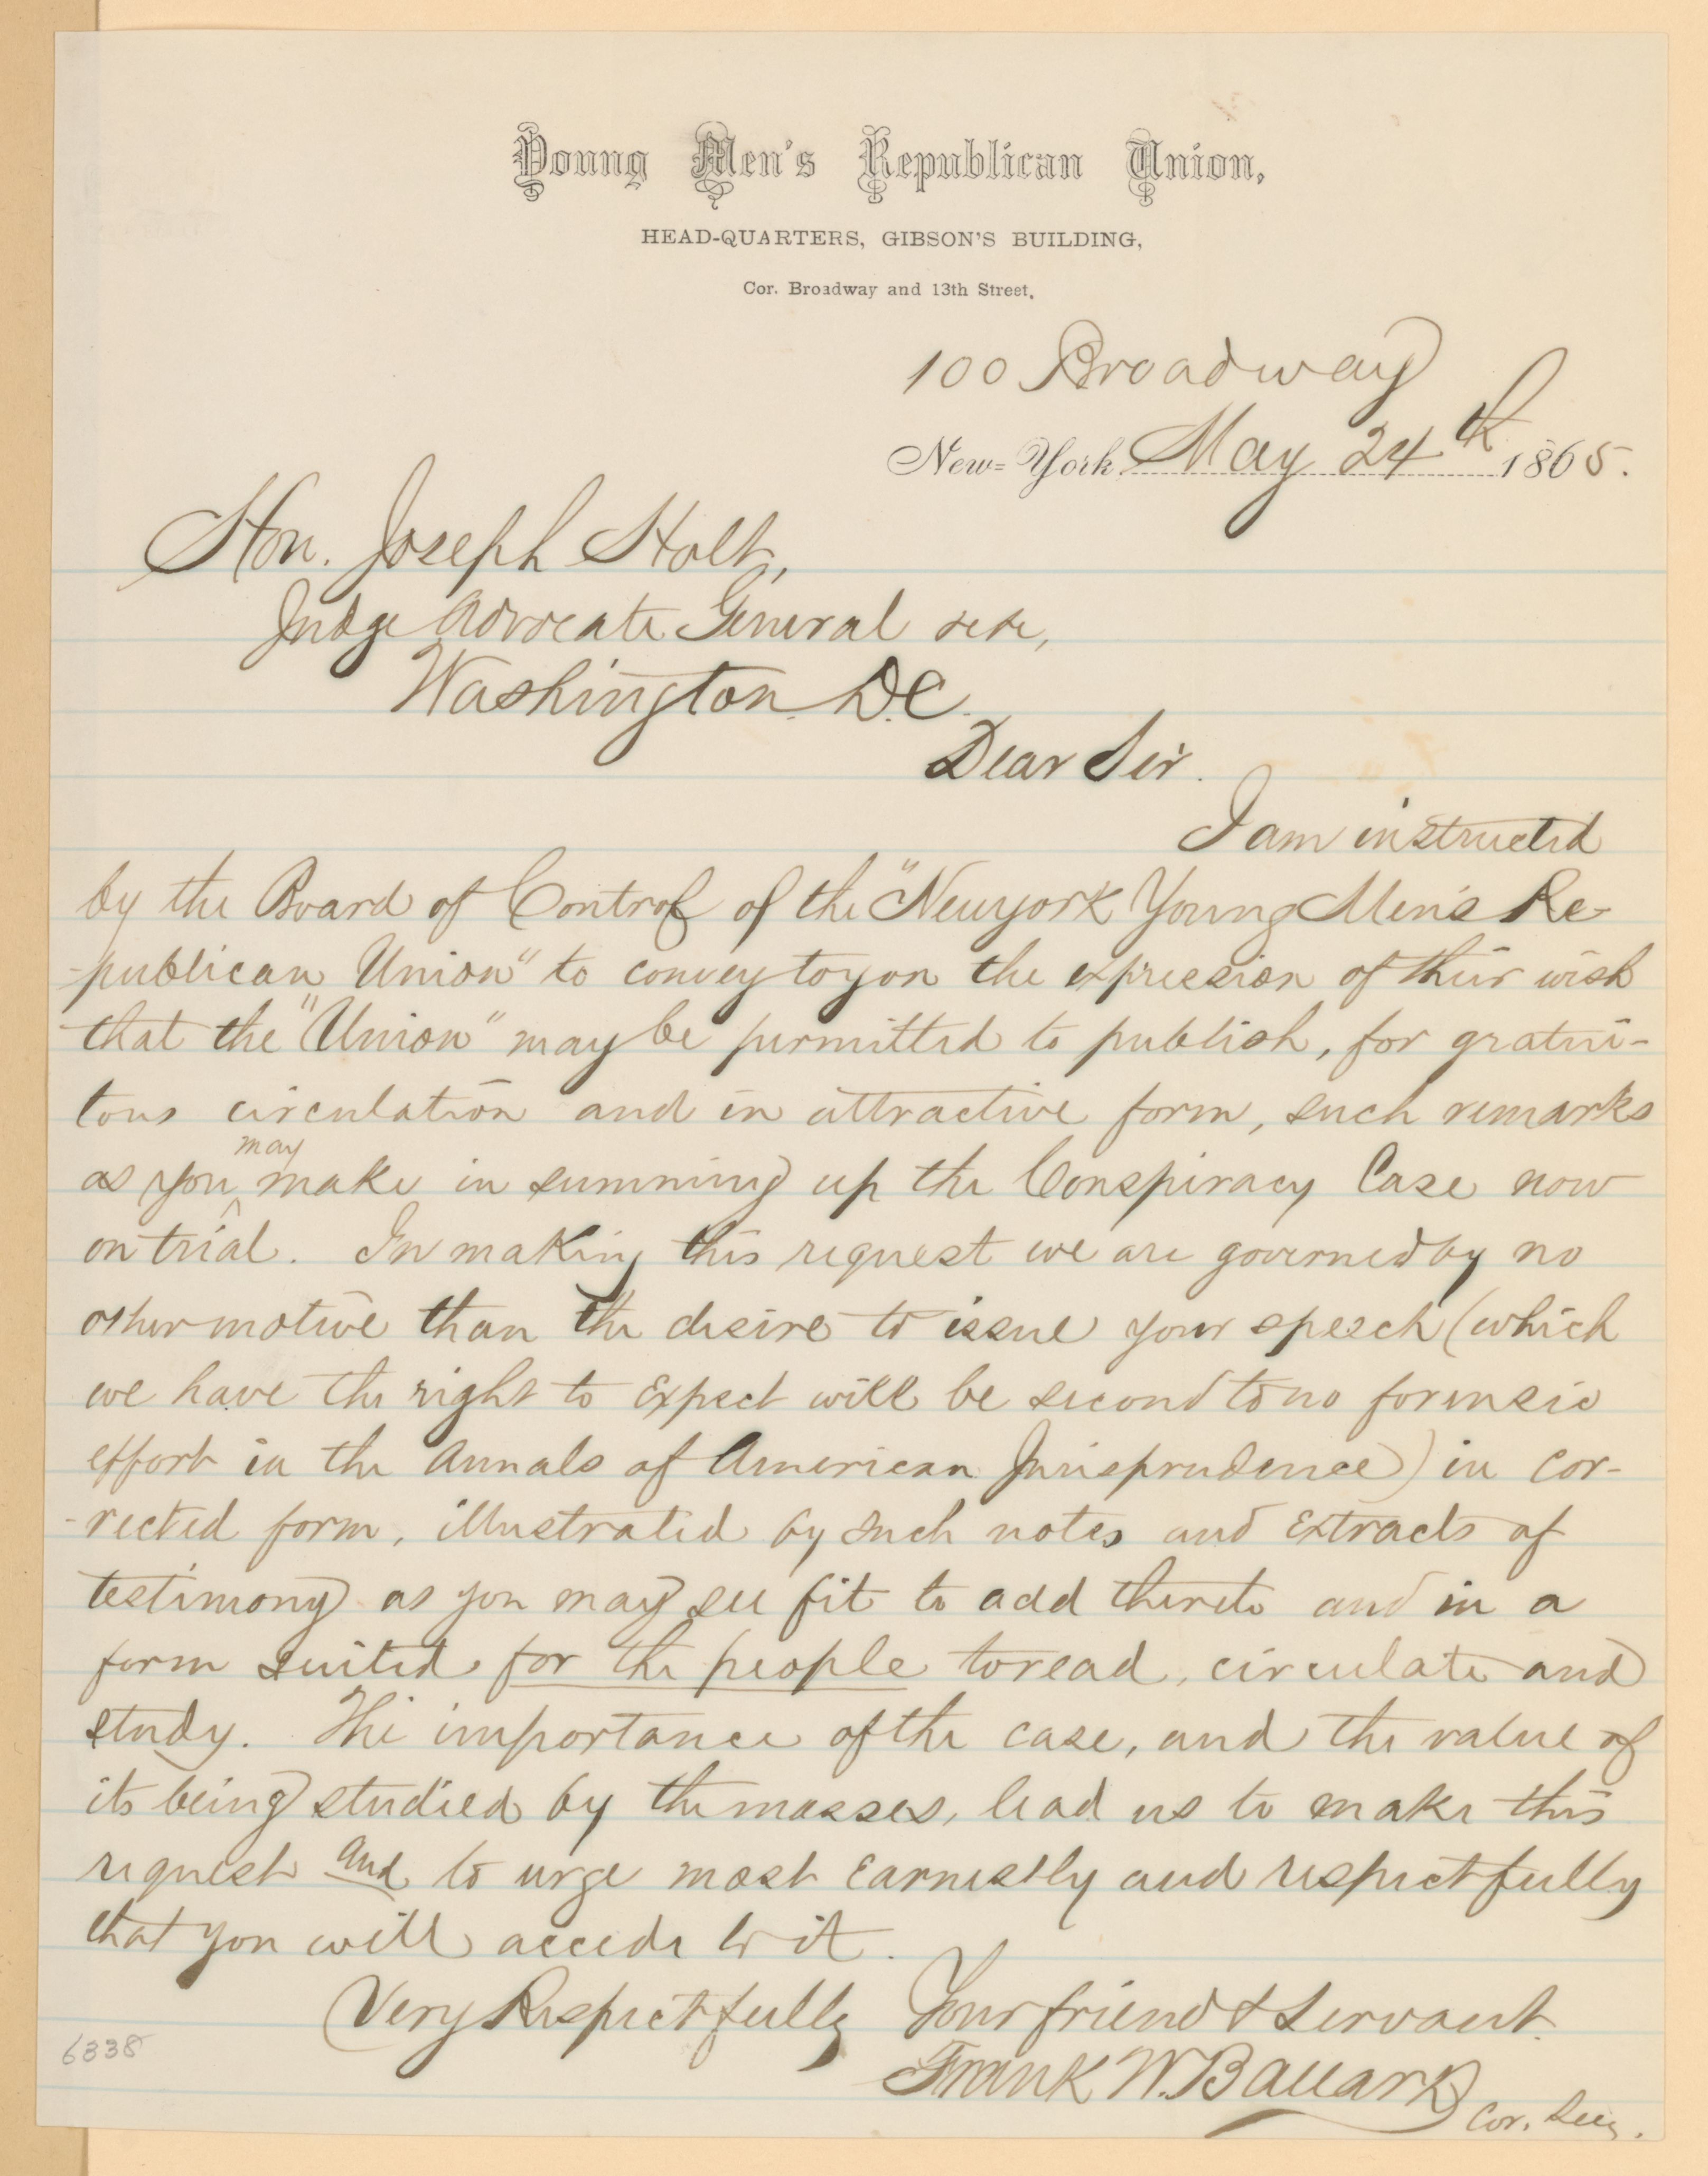 Young Men's Republican Union,
HEAD-QUARTERS, GIBSON'S BUILDING,
Cor. Broadway and 13th Street,
100 Broadway
New-York, May 24th 1865.
Hon. Joseph Holt,
Judge Advocate General &c &c,
Washington. D.C.
Dear Sir.
I am instructed
by the Board of Control of the "New York Young Men's Re-
-publican Union" to convey to you the expression of their wish
that the "Union" may be permitted to publish, for gratui-
tous circulation and in attractive form, such remarks
as you may make in summing up the Conspiracy Case now
on trial. In making this request we are governed by no
other motive than the desire to issue your speech (which
we have the right to expect will be second to no forensic
effort in the annals of American Jurisprudence) in cor-
-rected form, illustrated by such notes and extracts of
testimony as you may see fit to add thereto and in a
form suited for the people to read, circulate and
study. The importance of the case, and the value of
its being studied by the masses, lead us to make this
request and to urge most earnestly and respectfully
that you will accede to it.
Very Respectfully Your friend & Servant.
Frank W. Ballard
Cor. Secy.
6338